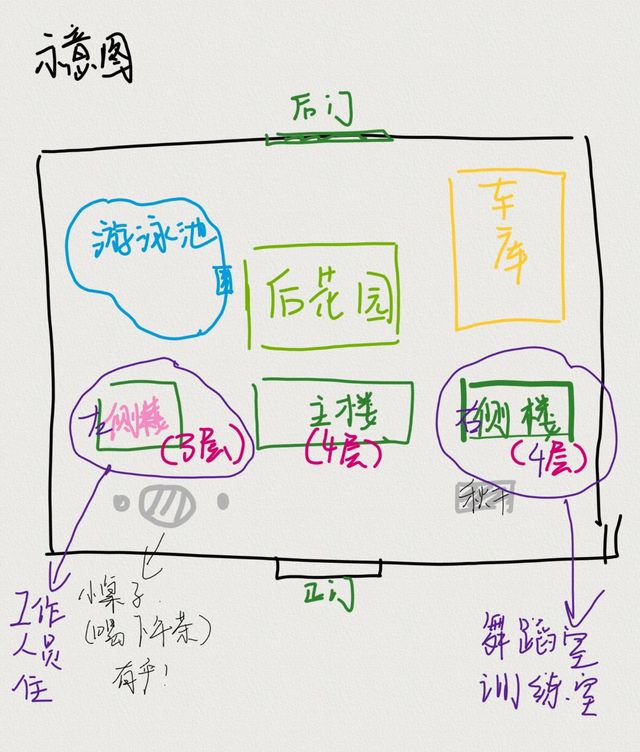 示意图
后门
游泳池
车库
后花园
左侧楼
(3层)
主楼
(4层)
右侧楼
(4层)
秋千
正门
工作
人员
住
小桌子
(喝下午茶)
有乎!
舞蹈室
训练室